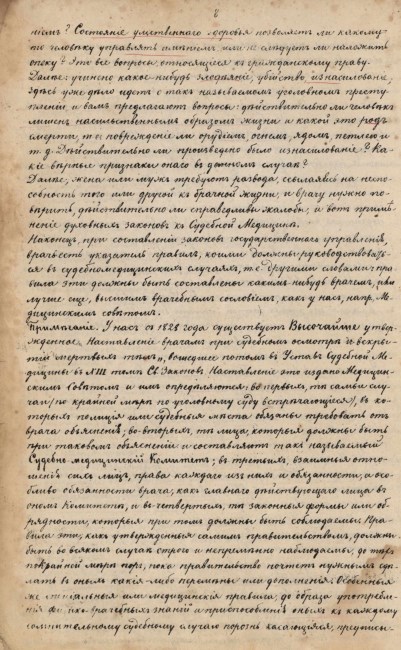 8
ніемъ? Состояніе умственнаго здоровья позволяетъ ли какому-
то человѣку управлять имѣніемъ или не слѣдуетъ ли наложить
опеку? Это все вопросы относящіеся къ гражданскому праву.
Далѣе: учинено какое-нибудь злодѣяніе, убійство, изнасилованіе,
здѣсь уже дѣло идетъ о такъ называемомъ уголовномъ престу-
пленіи, и вамъ предлагаютъ вопросы: дѣйствительно ли человѣкъ
лишенъ насильственнымъ образомъ жизни и какой это родъ
смерти, т. е. поврежденіе ли орудіемъ, огнемъ, ядомъ, петлею и
т. д. Дѣйствительно ли произведено было изнасилованіе? Ка-
кіе вѣрные признаки онаго въ данномъ случаѣ?
Далѣе, жена или мужъ требуютъ развода, ссылаясь на неспо-
собность того или другой къ брачной жизни, и врачу нужно по-
вѣрить, дѣйствительно ли справедливы жалобы; и вотъ примѣ-
неніе духовныхъ законовъ къ Судебной Медицинѣ.
Наконецъ, при составленіи законовъ государственнаго управленія,
врачъ есть указатель правилъ, коими должны руководствовать-
ся въ судебномедицинскихъ случаяхъ, т. е. другими словами: пра-
вила эти должны быть составлены какимъ-нибудь врачемъ, или
лучше еще, высшимъ врачебнымъ сословіемъ, какъ у насъ, напр. Ме-
дицинскимъ совѣтомъ.
Примѣчаніе. У насъ съ 1828 года существуетъ Высочайше утвер-
жденное "Наставленіе врачамъ при судебномъ осмотрѣ и вскры-
тіи мертвыхъ тѣлъ", вошедшее потомъ въ Уставъ Судебной Ме-
дицины въ XIII томъ Св. Законовъ. Наставленіе это издано Медицин-
скимъ Совѣтомъ и имъ опредѣляются: во первыхъ, тѣ самые слу-
чаи (по крайней мѣрѣ по уголовному суду встрѣчающіеся), въ ко-
торыхъ полиція или судебныя мѣста обязаны требовать отъ
врача объясненій; во-вторыхъ, тѣ лица, которыя должны быть
при таковомъ объясненіи и составляютъ такъ называемый
Судебно-медицинскій Комитетъ; въ третьихъ, взаимныя отно-
шенія сихъ лицъ, права каждаго изъ нихъ и обязанности, а осо-
бливо обязанности врача, какъ главнаго дѣйствующаго лица въ
ономъ Комитетѣ, и въ четвертыхъ, тѣ законныя формы или об-
рядности, которыя при томъ должны быть соблюдаемы. Пра-
вила эти, какъ утвержденныя самимъ правительствомъ, должны
быть во всякомъ случаѣ строго и непремѣнно наблюдаемы, до тѣхъ
по крайней мѣрѣ поръ, пока правительство почтетъ нужнымъ сдѣ-
лать въ оныхъ какія-либо перемѣны или дополненія. Особенныя
же спеціальныя или медицинскія правила, до образа употребле-
нія физико-врачебныхъ знаній и приспособленія оныхъ къ каждому
сомнительному судебному случаю порознь касающіяся, предписы-